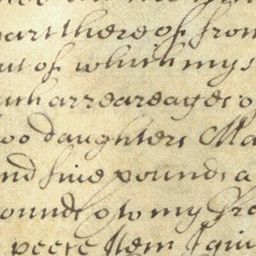 part thereof from
out of which my s
such arreareages o
two daughters Ma
and five pounds a
pounds to my Gra
peece Item I giu